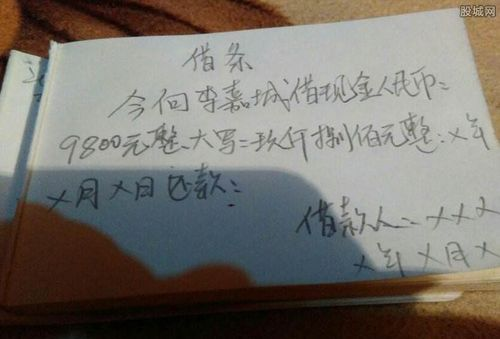 股城网
借条
今向李嘉城借现金人民币:
9800元整、大写:玖仟捌佰元整:x年
x月x日还款:
借款人:xxx
x年x月x